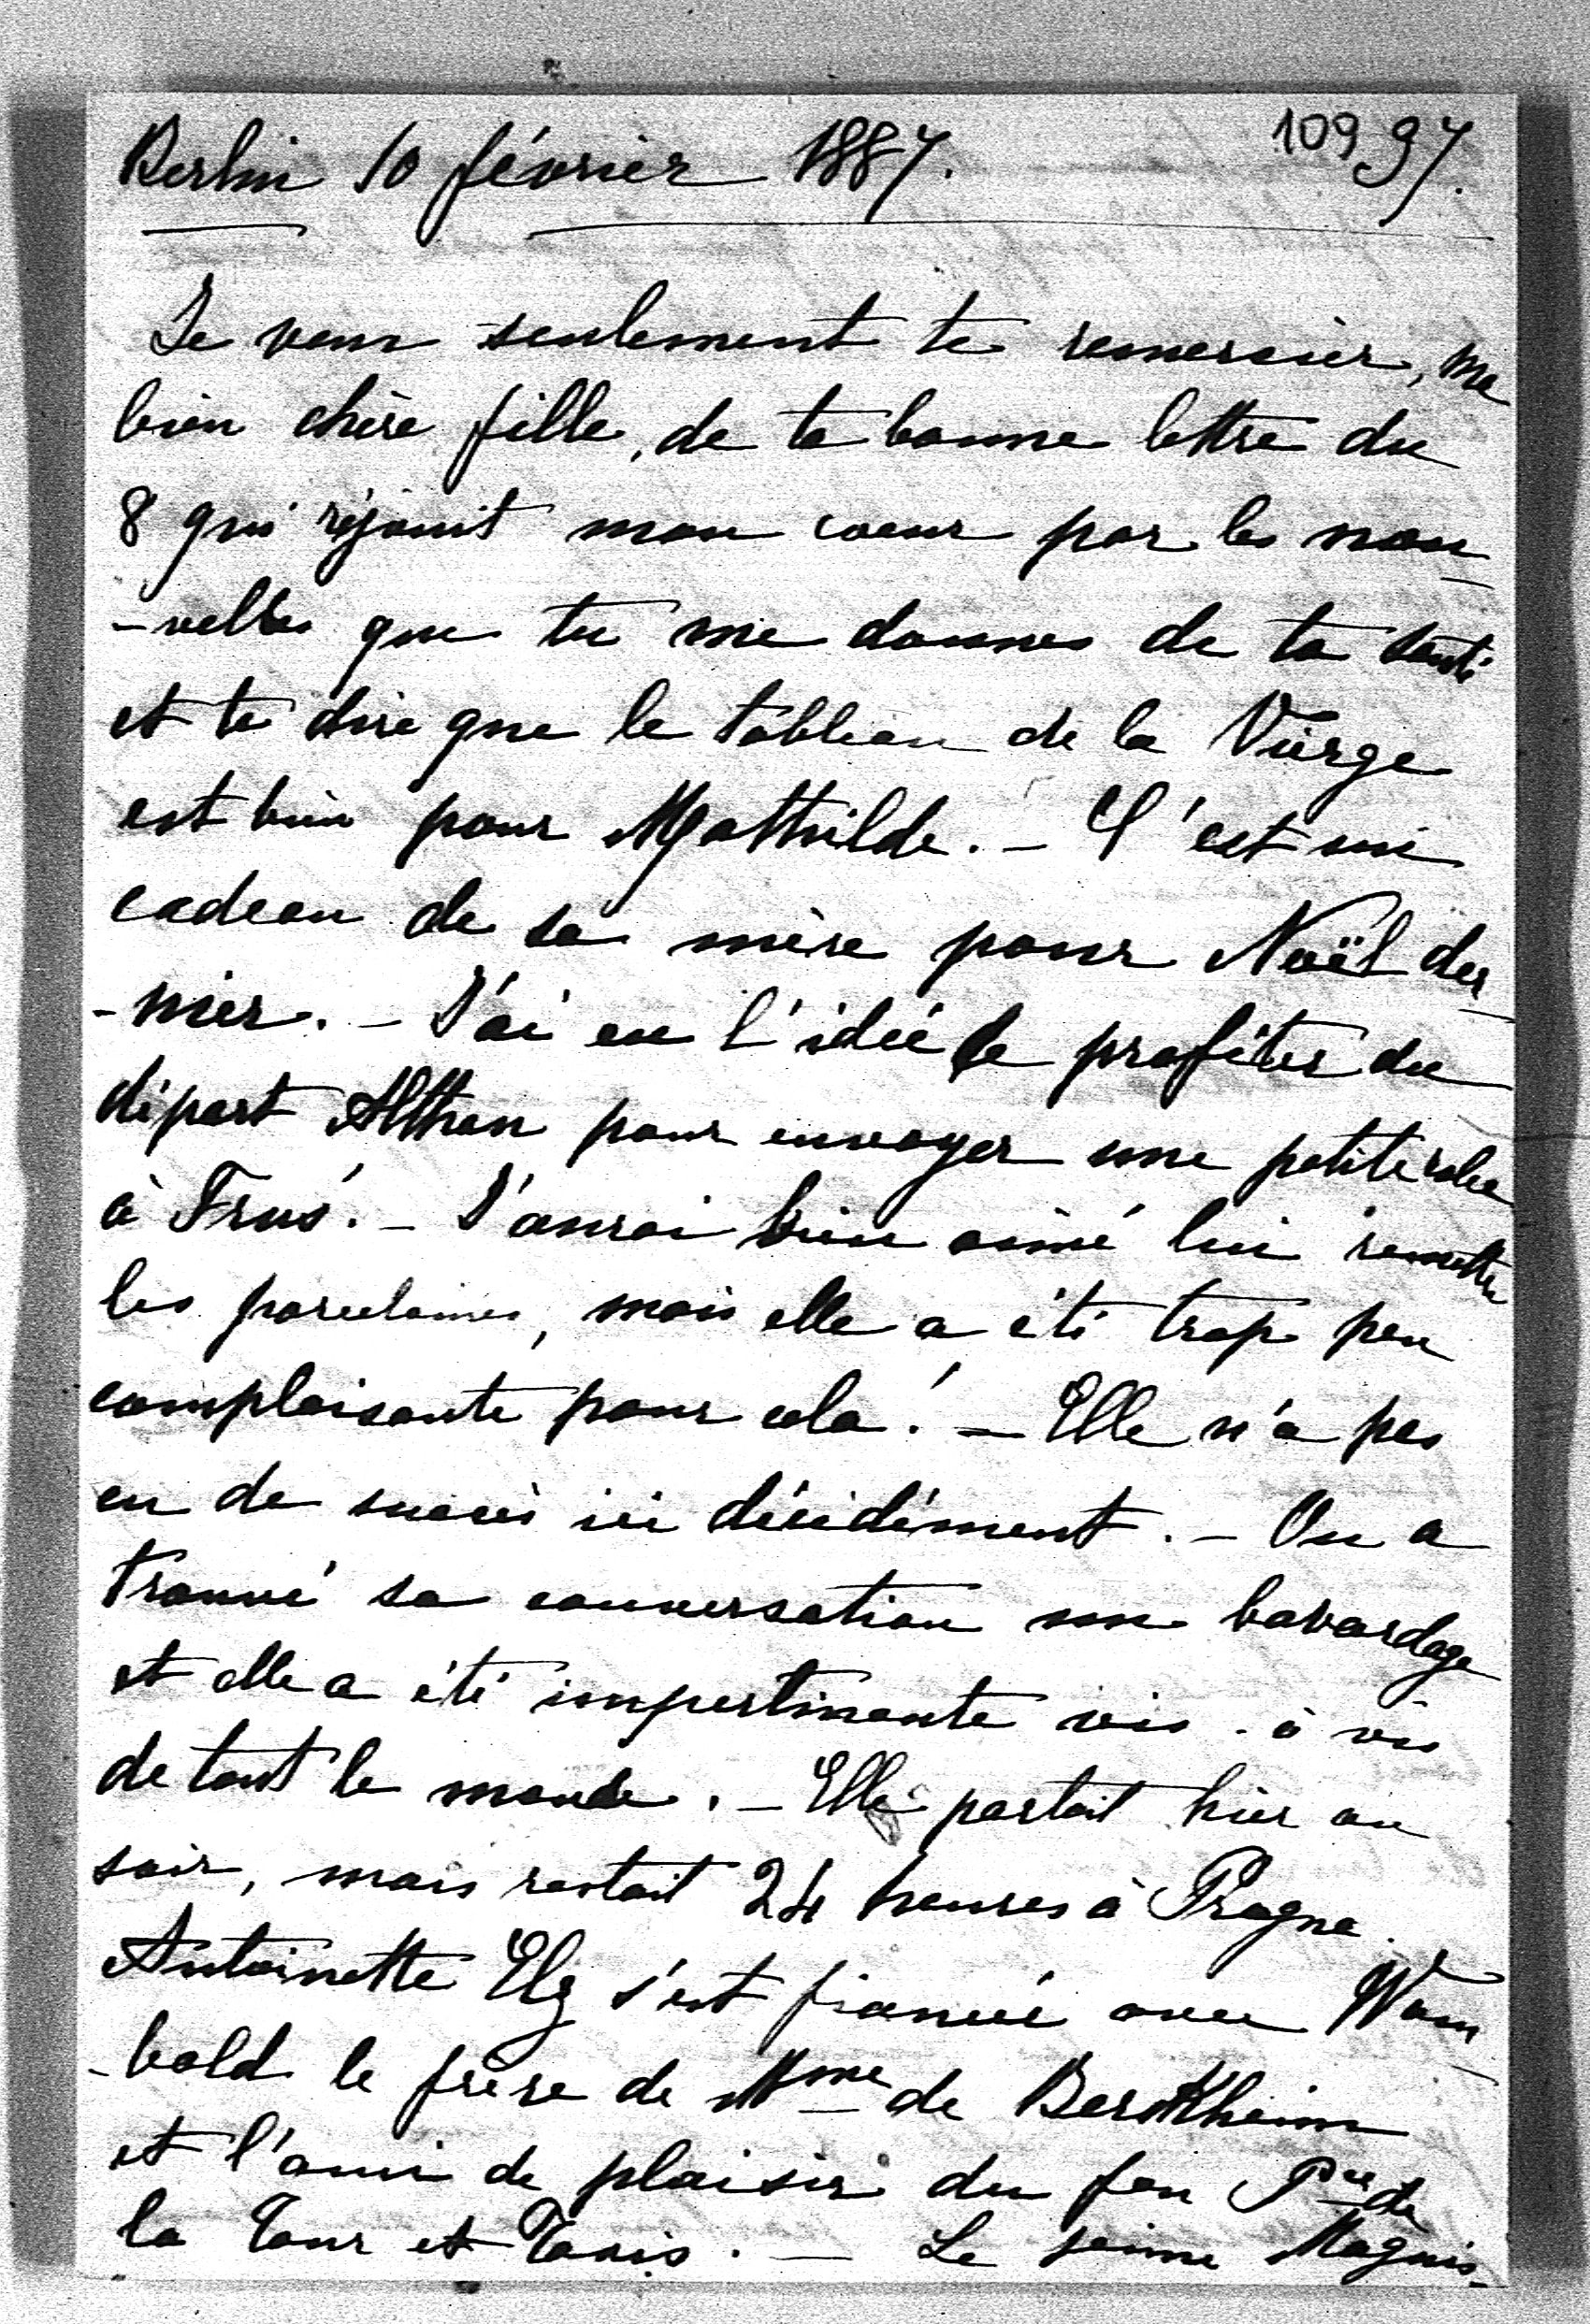 Berlin 10 février 1887. 109 97.
Je veux seulement te remercier, ma
bien chère fille, de ta bonne lettre du
8 qui réjouit mon coeur par les nou-
-velles que tu me donnes de ta santé
et te dire que le tableau de la Vierge
est bien pour Mathilde. - C'est un
cadeau de sa mère pour Noël der-
-nier. - J'ai eu l'idée de profiter du
départ Althan pour envoyer une petite robe
à . - J'aurai bien aimé lui remettre
les porcelaines, mais elle a été trop peu
complaisante pour cela! - Elle n'a pas
eu de succès ici décidément. - On a
trouvé sa conversation un bavardage
et elle a été impertinente vis-à-vis
de tout le monde. - Elle partait hier au
soir, mais restait 24 heures à Prague.
Antoinette Elz s'est fiancée avec Wam-
-bold le frère de Mme de Berckheim
et l'ami de plaisir du feu Pce de
la Tour et Taxis. - Le jeune Magnis-